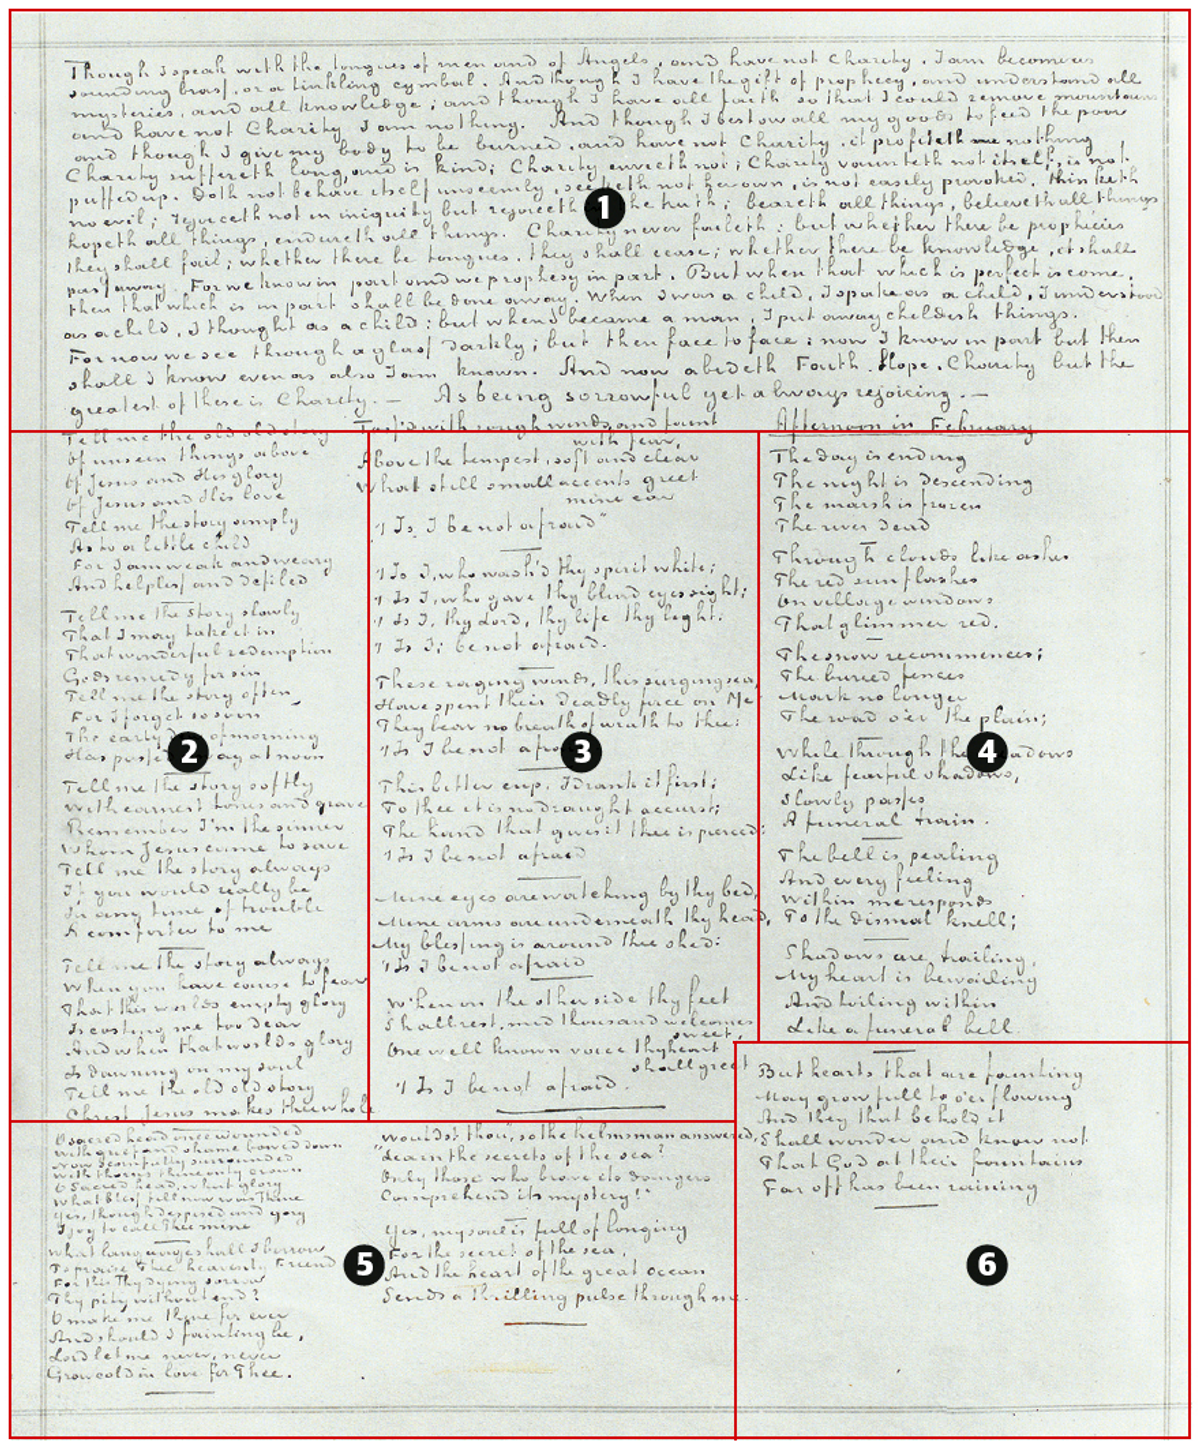 Though I speak with the tongues of men and of Angels, and have not Charity. I am become as
sounding brass, or a tinkling cymbal. And though I have the gift of prophecy, and understand all
mysteries, and all knowledge; and though I have all faith so that I could remove mountains
and have not Charity I am nothing. And though I bestow all my goods to feed the poor
and though I give my body to be burned, and have not Charity, it profiteth me nothing
Charity suffereth long, and is kind; Charity envieth not; Charity vaunteth not itself, is not
puffed up. Doth not behave itself unseemly, seeketh not her own, is not easily provoked, thinketh
no evil; rejoiceth not in iniquity but rejoiceth the truth; beareth all things, believeth all things
hopeth all things, endureth all things. Charity never faileth: but whether there be prophicies
they shall fail; whether there be tongues, they shall cease; whether there be knowledge, it shall
pass away. For we know in part and we prophesy in part. But when that which is perfect is come,
then that which is in part shall be done away. When I was a child, I spake as a child, I understood
as a child, I thought as a child: but when I became a man, I put away childish things.
For now we see through a glass darkly; but then face to face: now I know in part but then
shall I know even as also I am known. And now abideth Faith. Hope. Charity but the
greatest of these is Charity. — As being sorrowful yet always rejoicing. —
Tell me the old old story
Of unseen things above
Of Jesus and His glory
Of Jesus and His love
Tell me the story simply
As to a little child
For I am weak and weary
And helpless and defiled
Tell me the story slowly
That I may take it in
That wonderful redemption
Gods remedy for sin
Tell me the story often
For I forget so soon
The early of morning
Has passed away at noon
Tell me the story softly
With earnest tones and grave
Remember I'm the sinner
Whom Jesus came to save
Tell me the story always
If you would really be
In any time of trouble
A comforter to me
Tell me the story always
When you have cause to fear
That this worlds empty glory
Is costing me too dear
And when that worlds glory
Is dawning on my soul
Tell me the old old story
Christ Jesus makes thee whole
Toss'd with rough winds, and faint
with fear,
Above the tempest, soft and clear
What still small accents greet
mine ear
'T Is I be not afraid"
'T Is I, who wash'd thy spirit white;
'T Is I, who gave thy blind eyes sight;
'T Is I, thy Lord, thy life thy light:
'T Is I; be not afraid.
These raging winds, this surging sea
Have spent their deadly force on Me
They bear no breath of wrath to thee:
'T Is I be not afraid
This bitter cup, I drank it first;
To thee it is no draught accurst;
The hand that gives it thee is pierced:
'T Is I be not afraid
Mine eyes are watching by thy bed,
Mine arms are underneath thy head,
My blessing is around thee shed:
'T Is I be not afraid
When on the other side thy feet
Shall rest, mid thousand welcomes
sweet,
One well known voice thy heart
shall greet
'T Is I be not afraid.
Afternoon in February
The day is ending
The night is descending
The marsh is frozen
The river dead
Through clouds like ashes
The red sun flashes
On village windows
That glimmer red.
The snow recommences;
The buried fences
Mark no longer
The road o'er the plain;
While through the meadows
Like fearful shadows,
Slowly passes
A funeral train.
The bell is pealing
And every feeling
Within me responds
To the dismal knell;
Shadows are trailing,
My heart is bewailing
And toiling within
Like a funeral bell.
O sacred head once wounded
With grief and shame bowed down
Now scornfully surrounded
With thorns thine only crown
O Sacred head, what glory
What bliss till now was Thine
Yes, though despised and gory
I joy to call Thee mine
What language shall I borrow
To praise Thee heavenly Friend
For this Thy dying sorrow
Thy pity without end?
O make me thine for ever
And should I fainting be,
Lord let me never, never
Grow cold in love for Thee.
Wouldst thou", so the helmsman answered,
"Learn the secrets of the sea?
Only those who brave its dangers
Comprehend its mystery!"
Yes, my soul is full of longing
For the secret of the sea,
And the heart of the great ocean
Sends a thrilling pulse through me.
But hearts that are fainting
May grow full to o'er flowing
And they that behold it
Shall wonder and know not
That God at their fountains
Far off has been raining
1
2
3
4
5
6